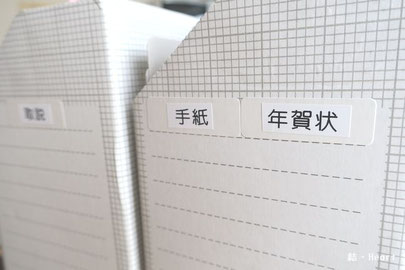 取説
手紙
年賀状
結・Heart